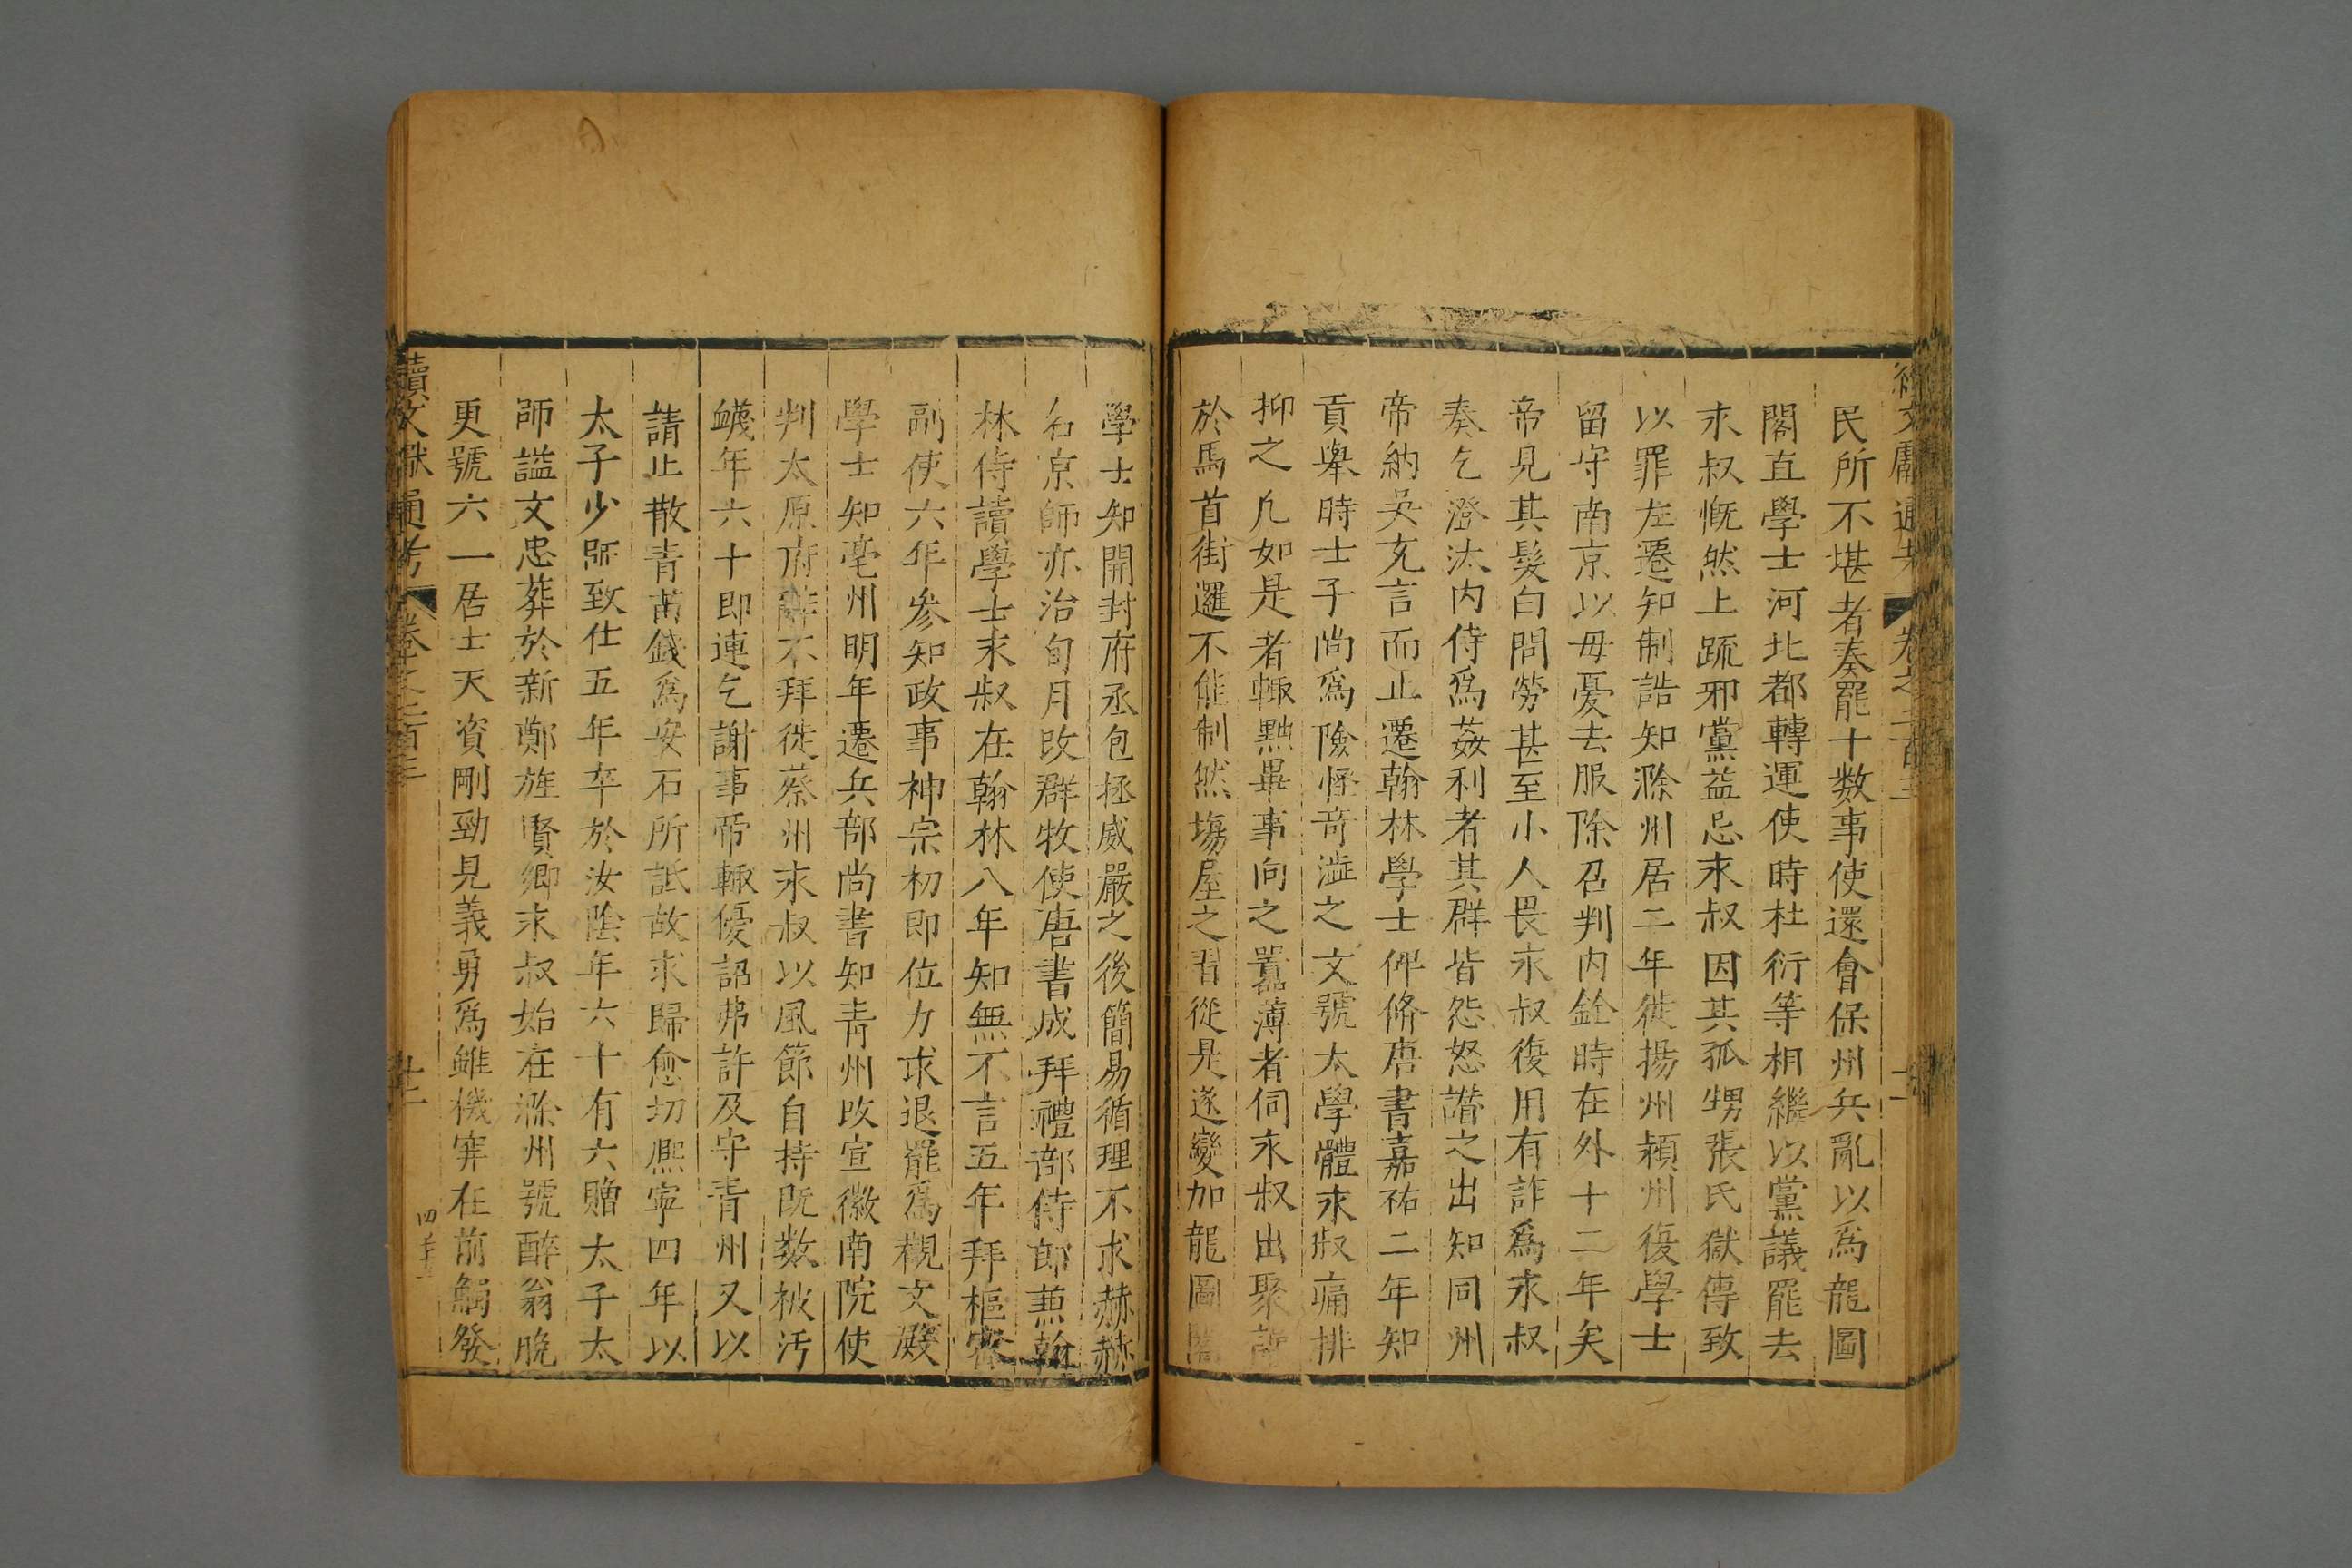 民所不堪者奏罷十數事使還會保州兵亂以爲龍圖
閣直學士河北都轉運使時杜衍等相繼以黨議罷去
永叔慨然上疏邪黨益忌永叔因其孤甥張氏獄傳致
以罪左遷知制誥知滁州居二年徙揚州潁州復學士
留守南京以母憂去服除召判內銓時在外十二年矣
帝見其髮白問勞甚至小人畏永叔復用有詐爲永叔
奏乞澄汰內侍爲姦利者其群皆怨怒譖之出知同州
帝納吳充言而止遷翰林學士俾脩唐書嘉祐二年知
貢舉時士子尚爲險怪奇澁之文號太學體永叔痛排
抑之凡如是者輒黜畢事向之囂薄者伺永叔出聚
於馬首街邏不能制然塲屋之習從是遂變加龍圖閣
學士知開封府丞包拯威嚴之後簡易循理不求赫赫
名京師亦治旬月改群牧使唐書成拜禮部侍郎兼翰
林侍讀學士永叔在翰林八年知無不言五年拜樞密
副使六年參知政事神宗初即位力求退罷爲觀文殿
學士知亳州明年遷兵部尚書知青州改宣徽南院使
判太原府辭不拜徙蔡州永叔以風節自持既數被汚
衊年六十即連乞謝事帝輒優詔弗許及守青州又以
請止散青苗錢爲安石所詆故求歸愈切熙寧四年以
太子少師致仕五年卒於汝陰年六十有六贈太子太
師謚文忠葬於新鄭旌賢鄉永叔始在滁州號醉翁晚
更號六一居士天資剛勁見義勇爲雖機穽在前觸發
續文獻通考 卷之二百三 廿二